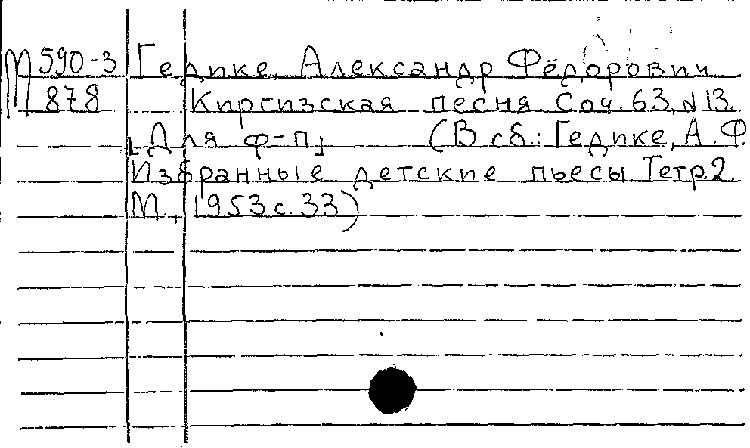 М 590-3 Гедике, Александр Фёдорович
878 Киргизская песня Соч. 63, № 13.
[Для ф-п] (В сб.: Гедике, А. Ф.
Избранные детские пьесы Тетр. 2
М., 1953 с. 33)